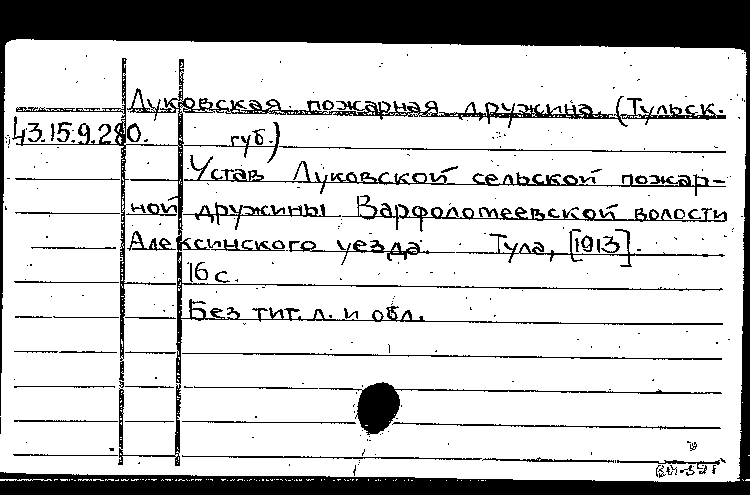 Луковская пожарная дружина. (Тульск.
43.15.9.280. губ.)
Устав Луковской сельской пожар-
ной дружины Варфоломеевской волости
Алексинского уезда. Тула, [1913].
16 с.
Без тит. л. и обл.